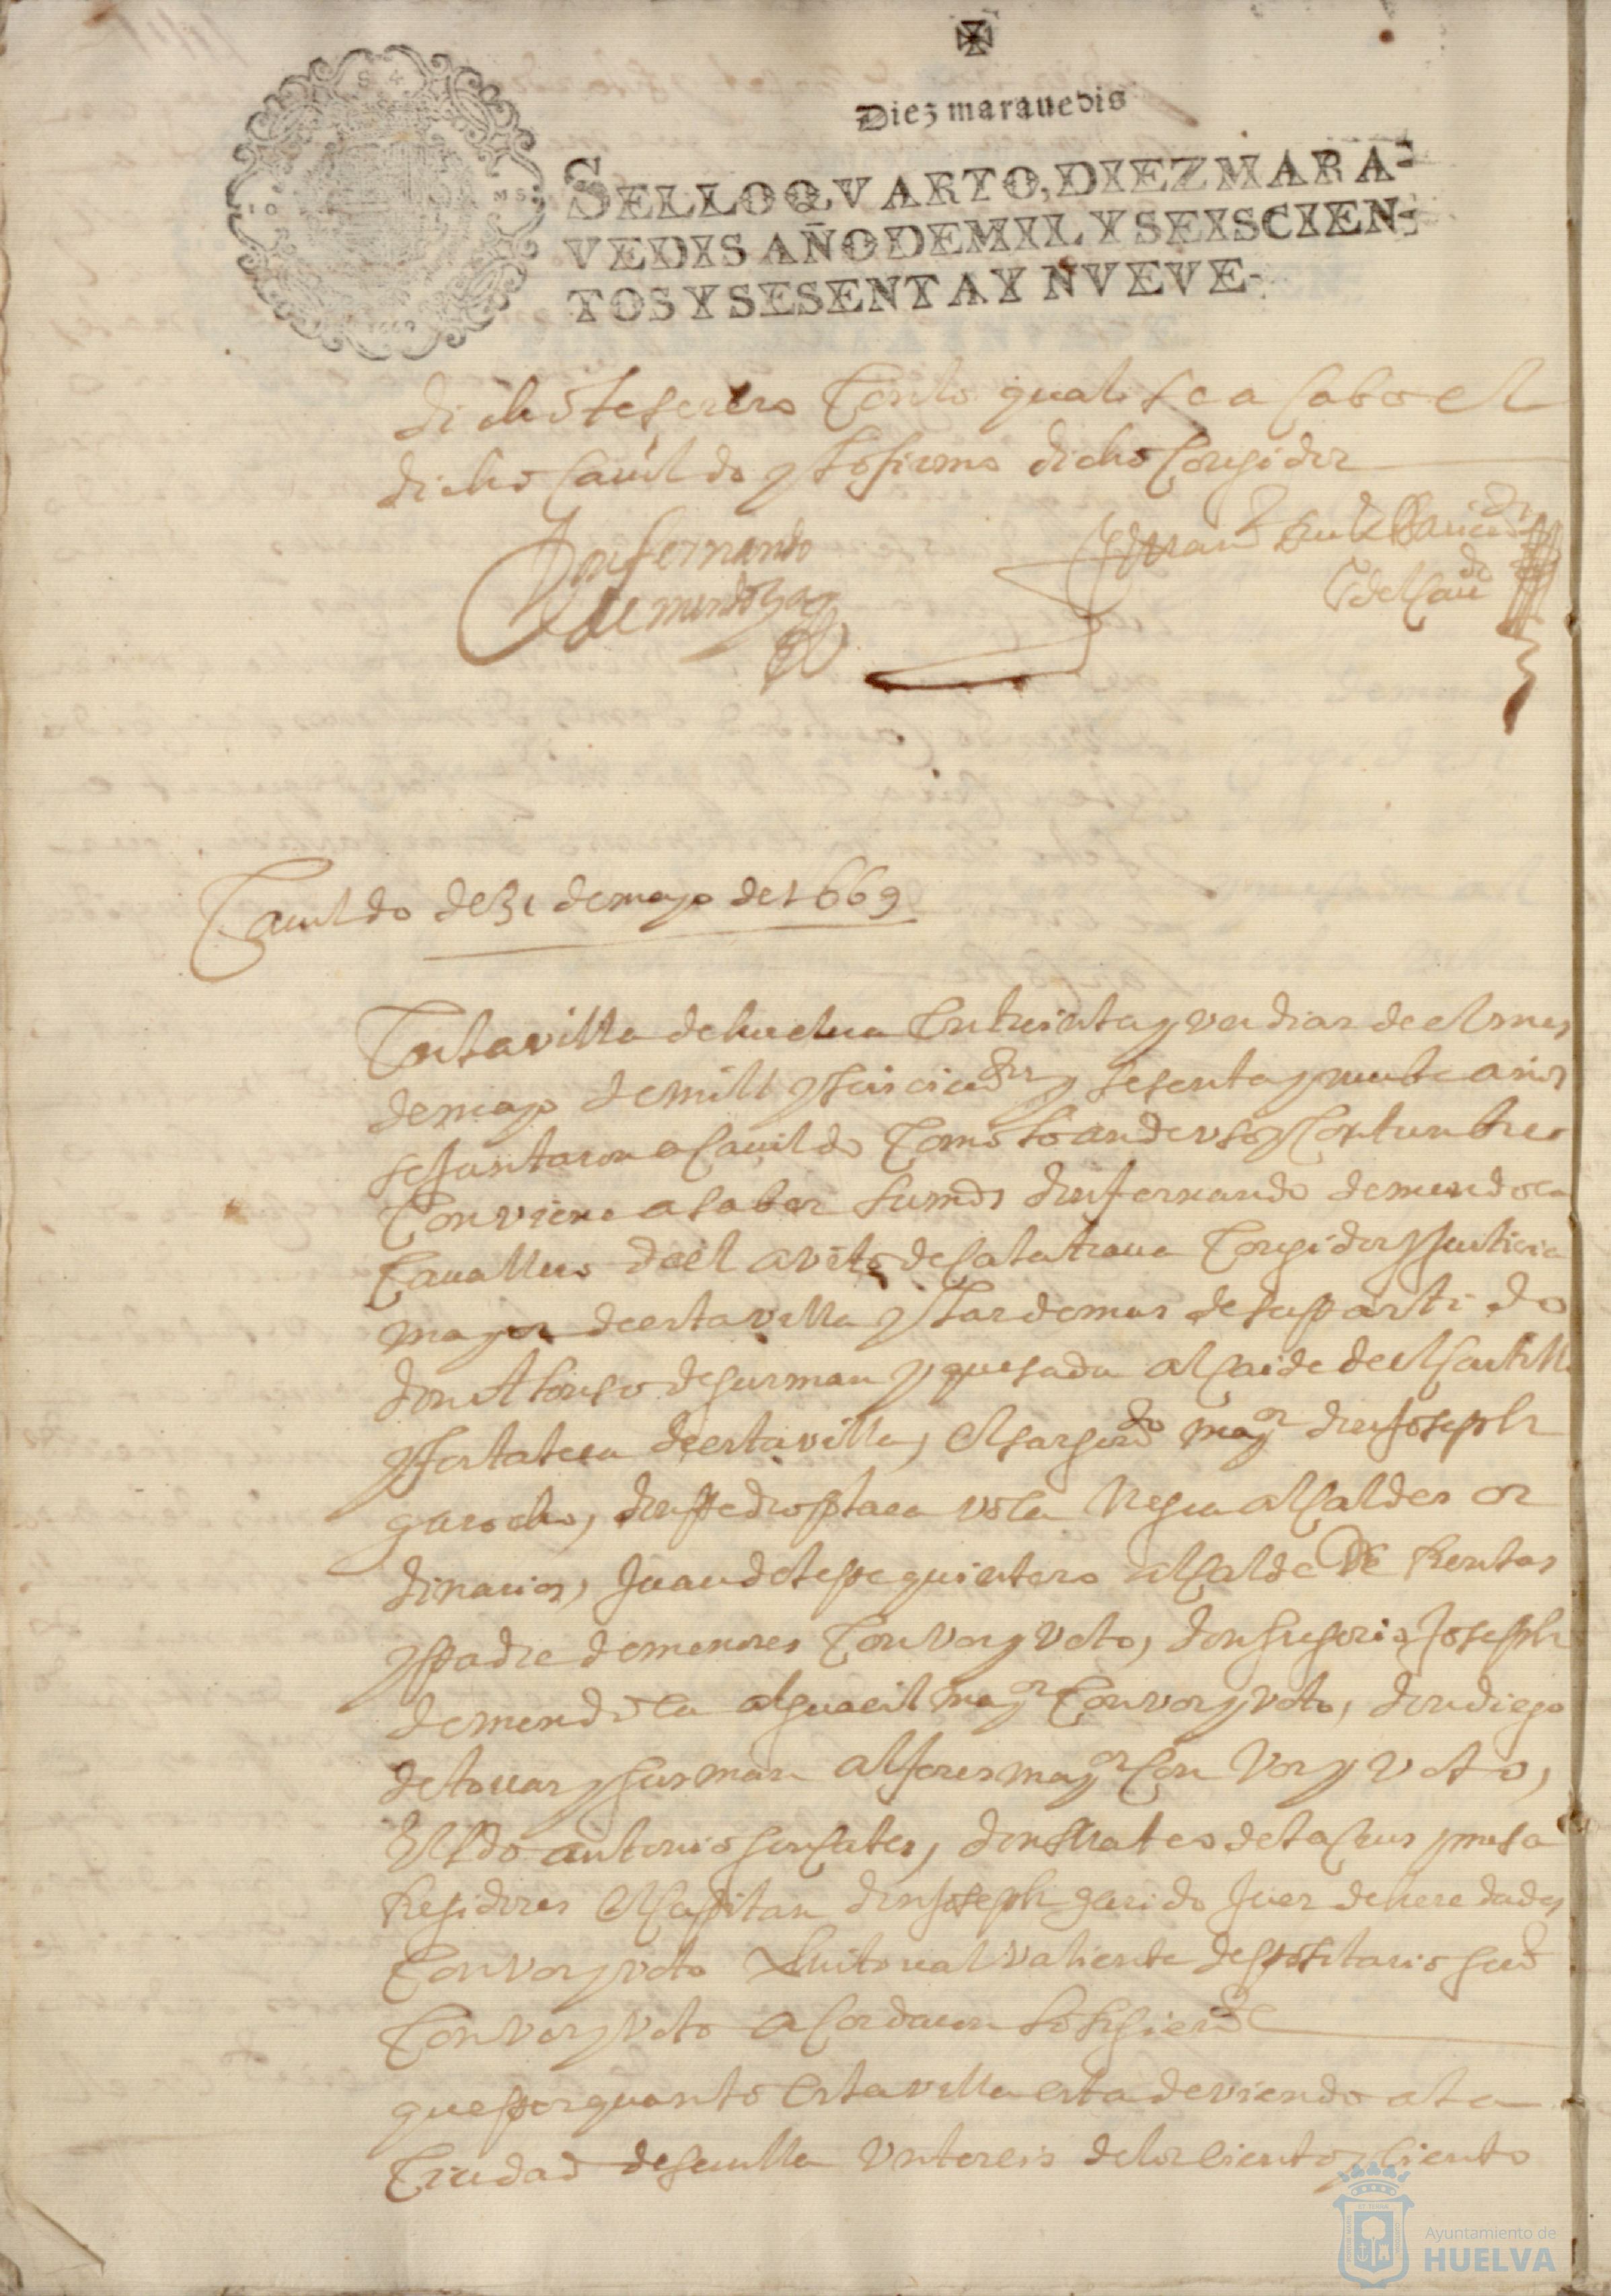 Diez maravedis
SELLO QVARTO, DIEZ MARA-
VEDIS AÑO DE MIL Y SEISCIEN-
TOS Y SESENTA Y NVEVE-
1669
dicho tesorero Con lo qual se acabo el
dicho Cauildo y lo firmo dicho Corregidor
Don fernando
de mendoza
del Cauдo
Cauildo de 31 de mayo de 1669
En la villa de huelua En treinta y un dias de el mes
de mayo de mill y seiscientos y sesenta y nuebe años
se juntaron a Cauildo Como lo an de uso y Costunbre
Conviene a saber su md don fernando de mendoca
Cauallero de el avito de Calatraua Corregidor y Justicia
mayor de esta villa y las demas de su partido
don Alonso de gusman y quesada alcaide de el Castillo
y fortaleca de esta villa, el sargento mayor don Joseph
garocho, don Pedro placa alcaldes or
dinarios, Juan de lepe quintero alcalde de Rentas
y padre de menores Con vos y voto, don gregorio Joseph
de mendoca alguacil mayor Con vos y voto, don diego
de touar y gusman alferes mayor Con vos y voto,
El Ldo antonio gonsales, don Mateo de la Crus y mesa
Regidores el Capitan don Joseph garrido Jues de heredades
Con vos y voto valiente depositario genl
Con vos y voto acordaron lo siguiente
que por quanto esta villa esta deviendo a la
Ciudad de seuilla de los ciento y ciento
Ayuntamiento de
HUELVA